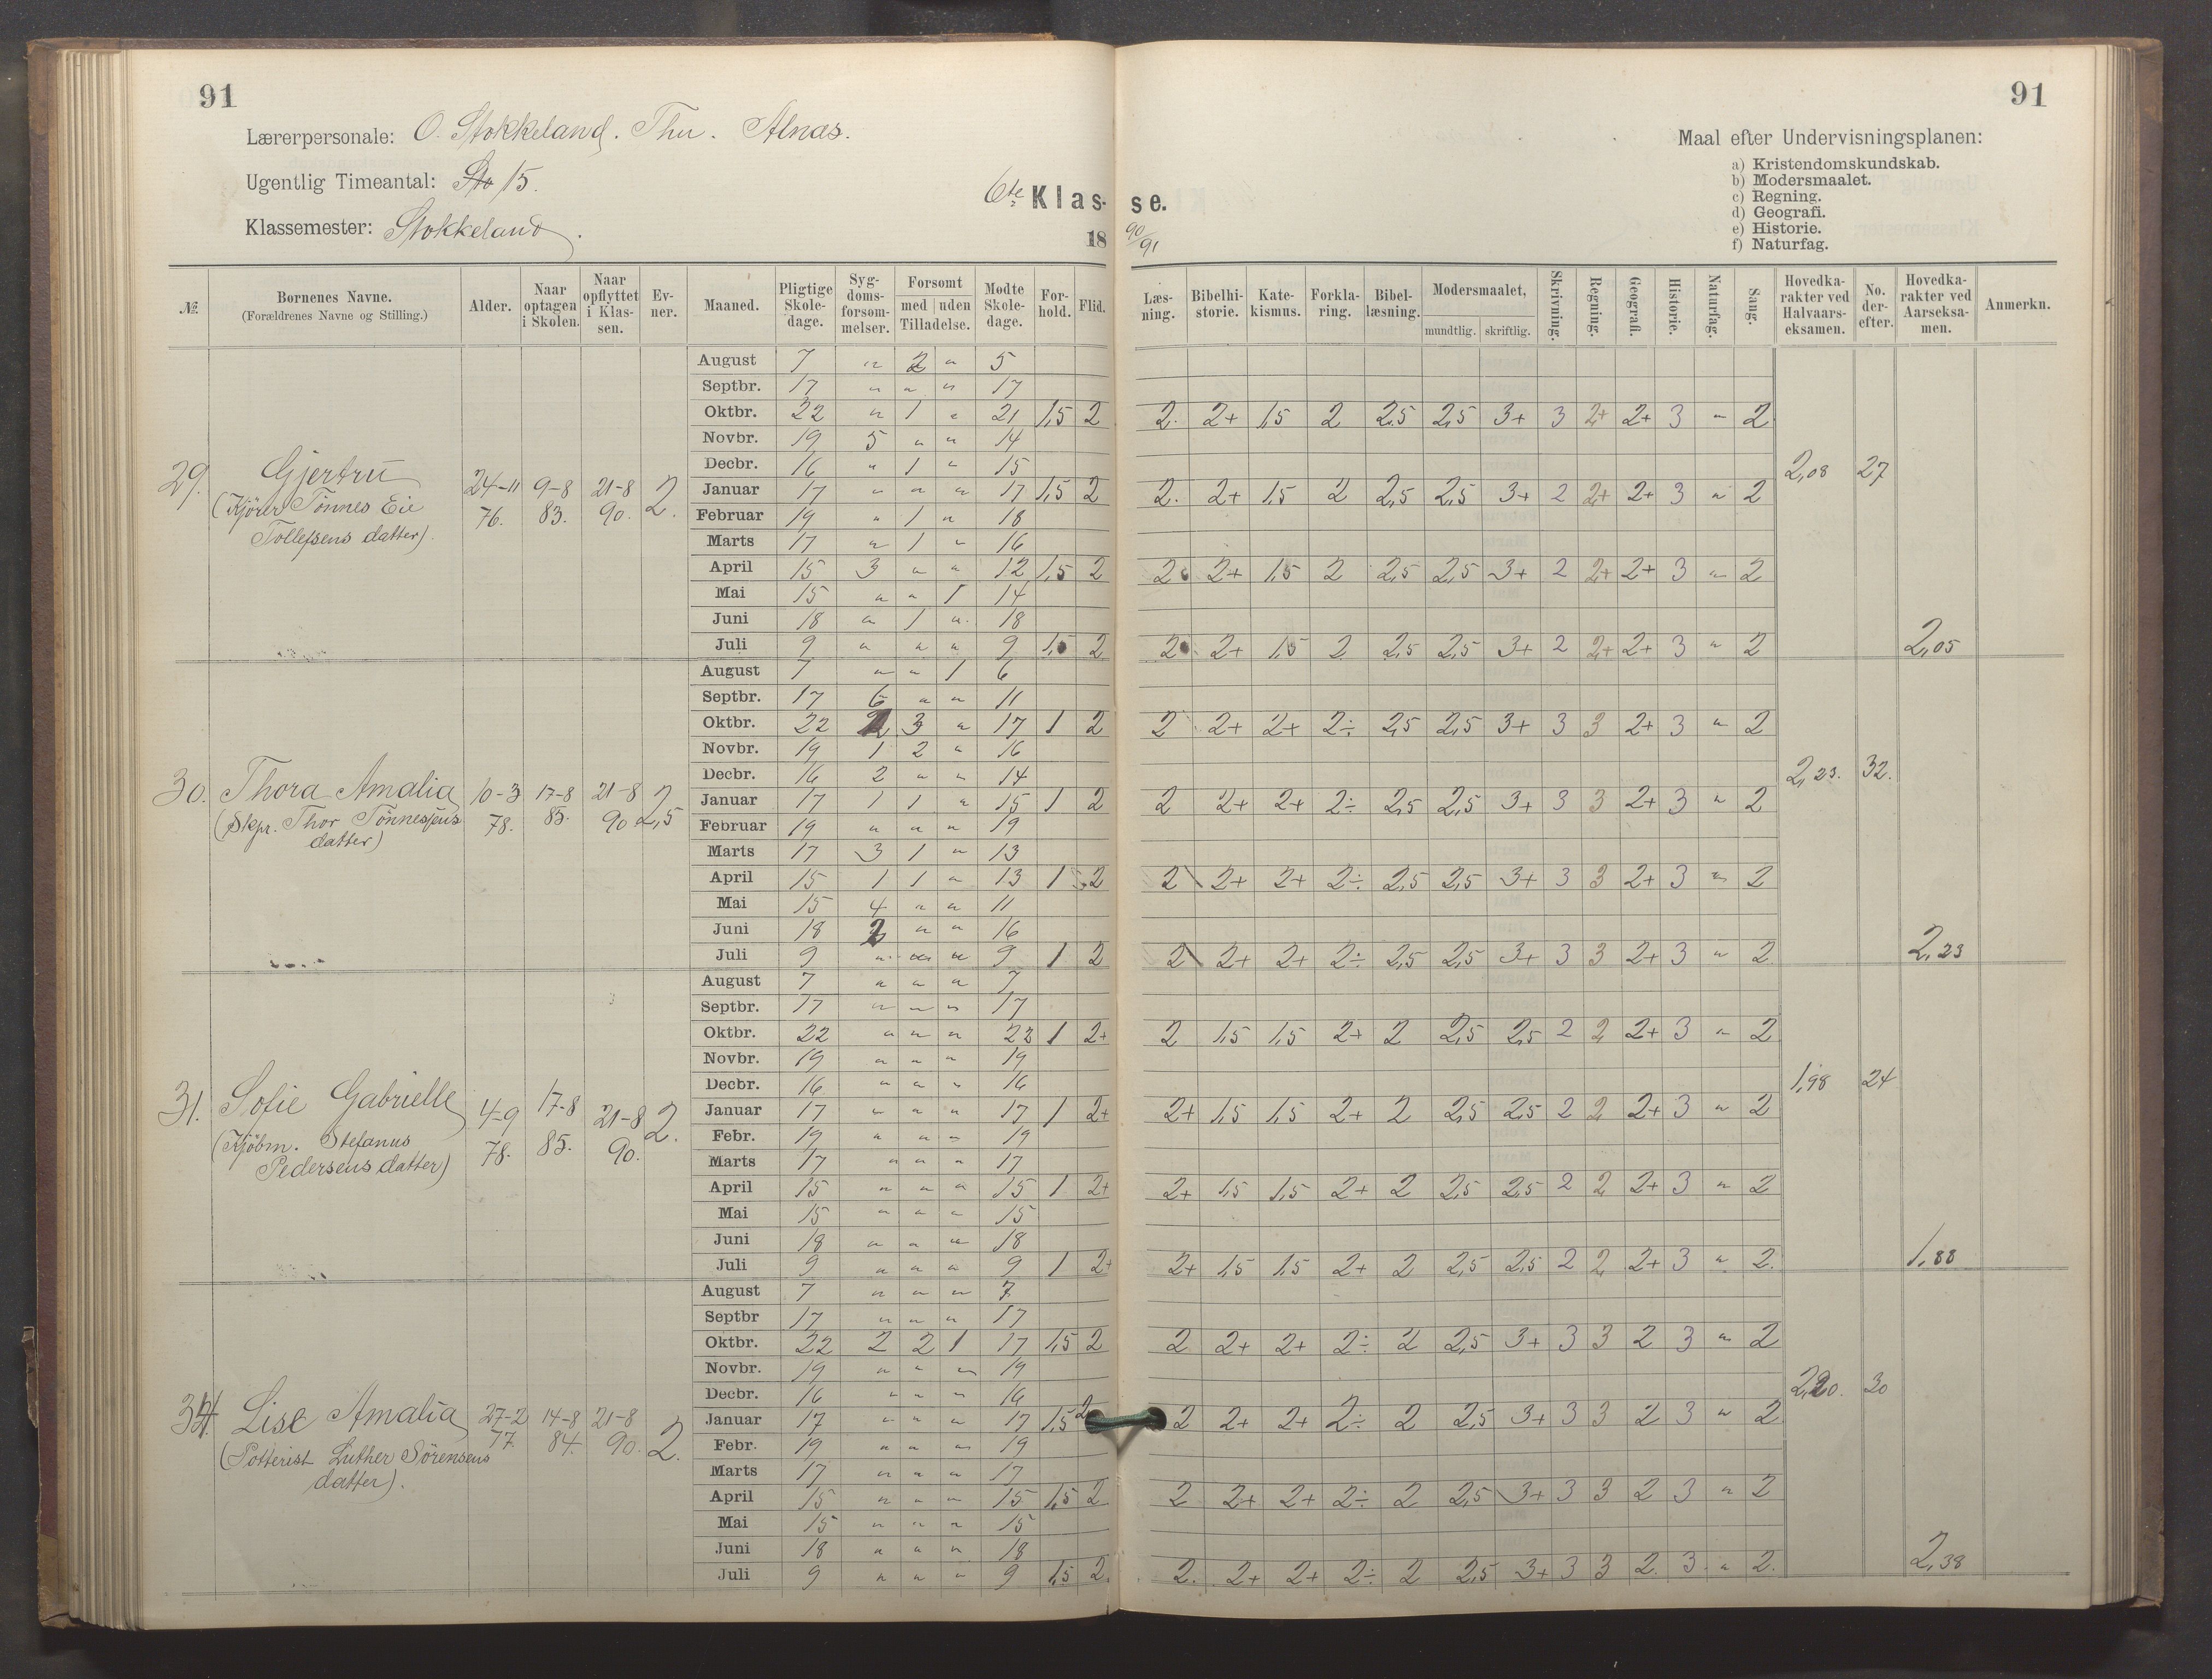 91
91
Lærerpersonale: O. Stokkeland. Thu. Alnæs.
Ugentlig Timeantal: Sto 15.
Klassemester: Stokkeland.
6te Klas- se.
18 90/91
Maal efter Undervisningsplanen:
a) Kristendomskundskab.
b) Modersmaalet.
c) Regning.
d) Geografi.
e) Historie.
f) Naturfag.
№. Børnenes Navne. (Forældrenes Navne og Stilling.) Alder. Naar optagen i Skolen. Naar opflyttet i Klassen. Evner. Maaned. Pligtige Skoledage. Sygdomsforsømmelser. Forsømt med uden Tilladelse. Mødte Skoledage. Forhold. Flid. Læsning. Bibelhistorie. Katekismus. Forklaring. Bibellæsning. Modersmaalet, mundtlig. skriftlig. Skrivning. Regning. Geografi. Historie. Naturfag. Sang. Hovedkarakter ved Halvaarseksamen. No. derefter. Hovedkarakter ved Aarseksamen. Anmerkn.
29. Gjertru
(Kjörer Tönnes Eie
Tollefsens datter).
24-11 76. 9-8 83. 21-8 90. 2.
August 7 " 2 " 5
Septbr. 17 " " " 17
Oktbr. 22 " 1 " 21 1,5 2 2. 2+ 1,5 2 2,5 2,5 3+ 3 2+ 2+ 3 " 2
Novbr. 19 5 " " 14
Decbr. 16 " 1 " 15
2,08 27
Januar 17 " " " 17 1,5 2 2. 2+ 1,5 2 2,5 2,5 3+ 2 2+ 2+ 3 " 2
Februar 19 " 1 " 18
Marts 17 " 1 " 16
April 15 3 " " 12 1,5 2 2 2+ 1,5 2 2,5 2,5 3+ 2 2+ 2+ 3 " 2
Mai 15 " " 1 14
Juni 18 " 1 " 18
Juli 9 " " " 9 1,5 2 2 2+ 1,5 2 2,5 2,5 3+ 2 2+ 2+ 3 " 2 2,05
30. Thora Amalia
(Skpr. Thor Tönnesens
datter)
10-3 78. 17-8 85. 21-8 90 2,5
August 7 " " 1 6
Septbr. 17 6 " " 11
Oktbr. 22 2 3 " 17 1 2 2 2+ 2+ 2÷ 2,5 2,5 3+ 3 3 2+ 3 " 2
Novbr. 19 1 2 " 16
Decbr. 16 2 " " 14
2,23. 32.
Januar 17 1 1 " 15 1 2 2 2+ 2+ 2÷ 2,5 2,5 3+ 3 3 2+ 3 " 2
Februar 19 " " " 19
Marts 17 3 1 " 13
April 15 1 1 " 13 1 2 2 2+ 2+ 2÷ 2,5 2,5 3+ 3 3 2+ 3 " 2
Mai 15 4 " " 11
Juni 18 2 " " 16
Juli 9 " " " 9 1 2 2 2+ 2+ 2÷ 2,5 2,5 3+ 3 3 2+ 3 " 2 2,23
31. Sofie Gabrielle
(Kjöbm. Stefanus
Pedersens datter)
4-9 78. 17-8 85. 21-8 90. 2.
August 7 " " " 7
Septbr. 17 " " " 17
Oktbr. 22 " " " 22 1 2+ 2 1,5 1,5 2+ 2 2,5 2,5 2 2 2+ 3 " 2
Novbr. 19 " " " 19
Decbr. 16 " " " 16
1,98 24
Januar 17 " " " 17 1 2+ 2+ 1,5 1,5 2+ 2 2,5 2,5 2 2 2+ 3 " 2
Febr. 19 " " " 19
Marts 17 " " " 17
April 15 " " " 15 1 2+ 2+ 1,5 1,5 2+ 2 2,5 2,5 2 2 2+ 3 " 2
Mai 15 " " " 15
Juni 18 " " " 18
Juli 9 " " " 9 1 2+ 2+ 1,5 1,5 2+ 2 2,5 2,5 2 2 2+ 3 " 2. 1,88
Lise Amalia
(Potterist Luther Sörensens
datter).
27-2 77. 14-8 84. 21-8 90. 2.
August 7 " " " 7
Septbr 17 " " " 17
Oktbr. 22 2 2 1 17 1,5 2 2 2+ 2+ 2÷ 2 2,5 3+ 3 3 2 3 " 2
Novbr. 19 " " " 19
Decbr. 16 " " " 16
2,20. 30
Januar 17 " " " 17 1,5 2 2 2+ 2+ 2÷ 2 2,5 3+ 3 3 2 3 " 2
Febr. 19 " " " 19
Marts 17 " " " 17
April 15 " " " 15 1,5 2 2 2+ 2+ 2÷ 2 2,5 3+ 3 3 2 3 " 2
Mai 15 " " " 15
Juni 18 " " " 18
Juli 9 " " " 9 1,5 2 2. 2+ 2+ 2÷ 2 2,5 3+ 3 3 2. 3. " 2. 2,38